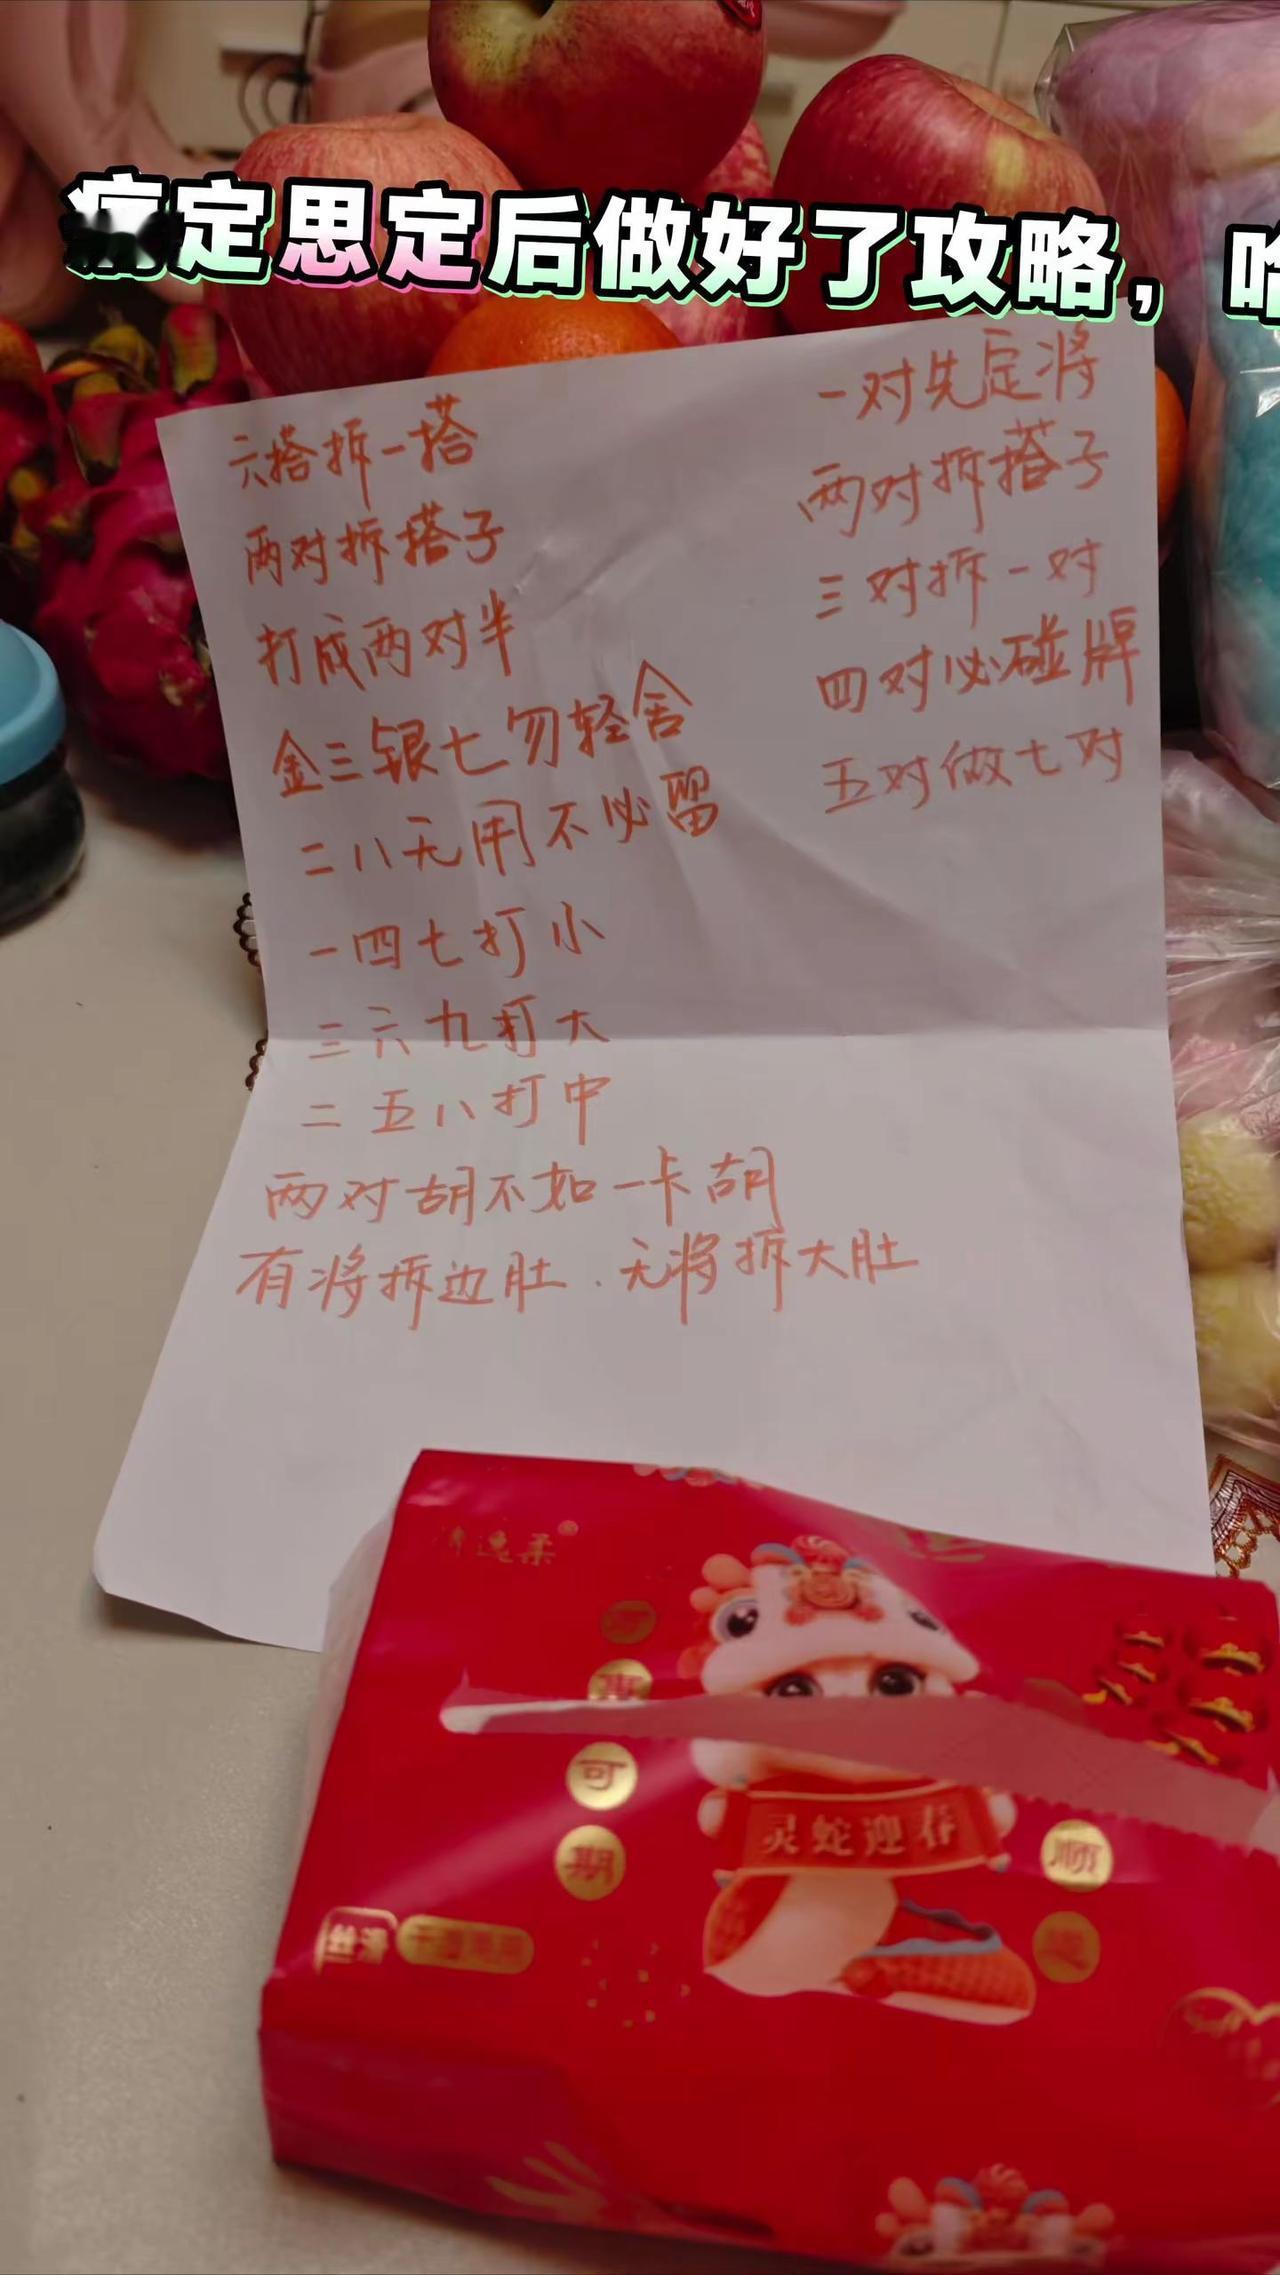 痛定思定后做好了攻略，哈
六搭拆一搭
两对拆搭子
打成两对半
金三银七勿轻舍
二八无用不必留
一四七打小
三六九打大
二五八打中
两对胡不如一卡胡
有将拆边肚．无将拆大肚
一对先定将
两对拆搭子
三对拆一对
四对必碰牌
五对做七对
逸柔
可
期
灵蛇迎春
顺
丝滑